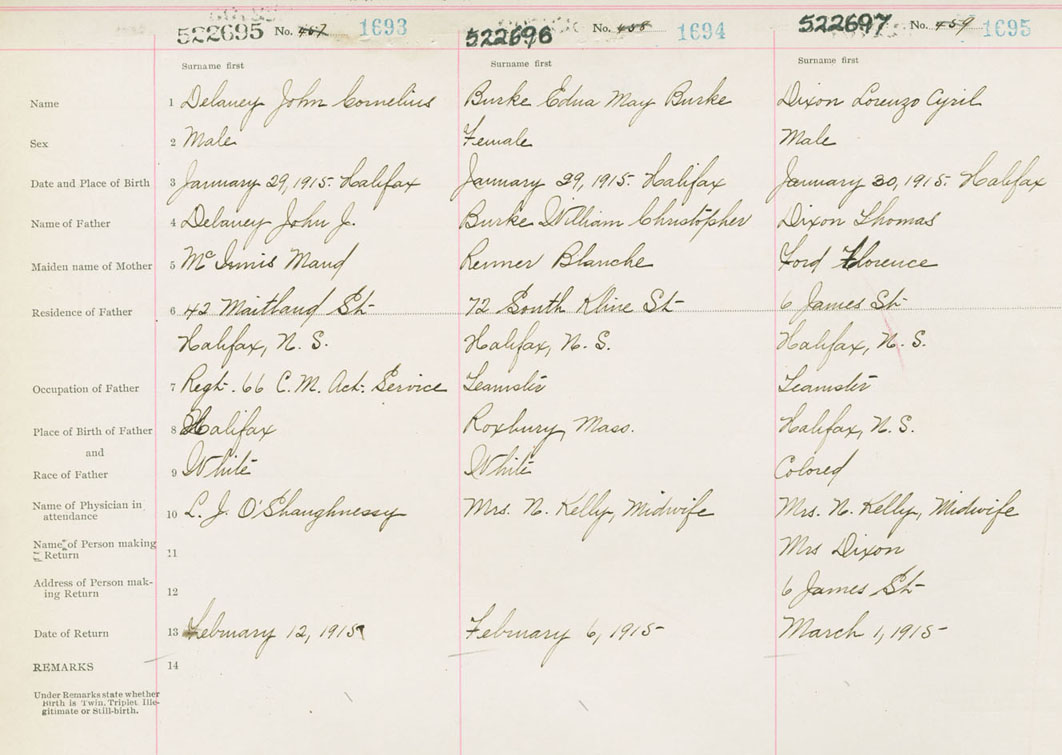 522695 No. 457 1693 522696 No. 458 1694 522697 No. 459 1695
Surname first Surname first Surname first
Name 1 Delaney John Cornelius Burke Edna May Burke Dixon Lorenzo Cyril
Sex 2 Male Female Male
Date and Place of Birth 3 January 29, 1915. Halifax January 29, 1915. Halifax January 30, 1915. Halifax
Name of Father 4 Delaney John J. Burke William Christopher Dixon Thomas
Maiden name of Mother 5 McInnis Maud Renner Blanche Ford Florence
Residence of Father 6 42 Maitland St 72 South Kline St 6 James St
Halifax, N. S. Halifax, N. S. Halifax, N. S.
Occupation of Father 7 Regt. 66 C. M. Act. Service Teamster Teamster
Place of Birth of Father 8 Halifax Roxbury, Mass. Halifax, N. S.
and
Race of Father 9 White White Colored
Name of Physician in
attendance 10 L. J. O'Shaughnessy Mrs. N. Kelly, Midwife Mrs. N. Kelly, Midwife
Name of Person making
Return 11 Mrs Dixon
Address of Person mak-
ing Return 12 6 James St
Date of Return 13 February 12, 1915 February 6, 1915 March 1, 1915
REMARKS 14
Under Remarks state whether
Birth is Twin, Triplet, Ille-
gitimate or Still-birth.